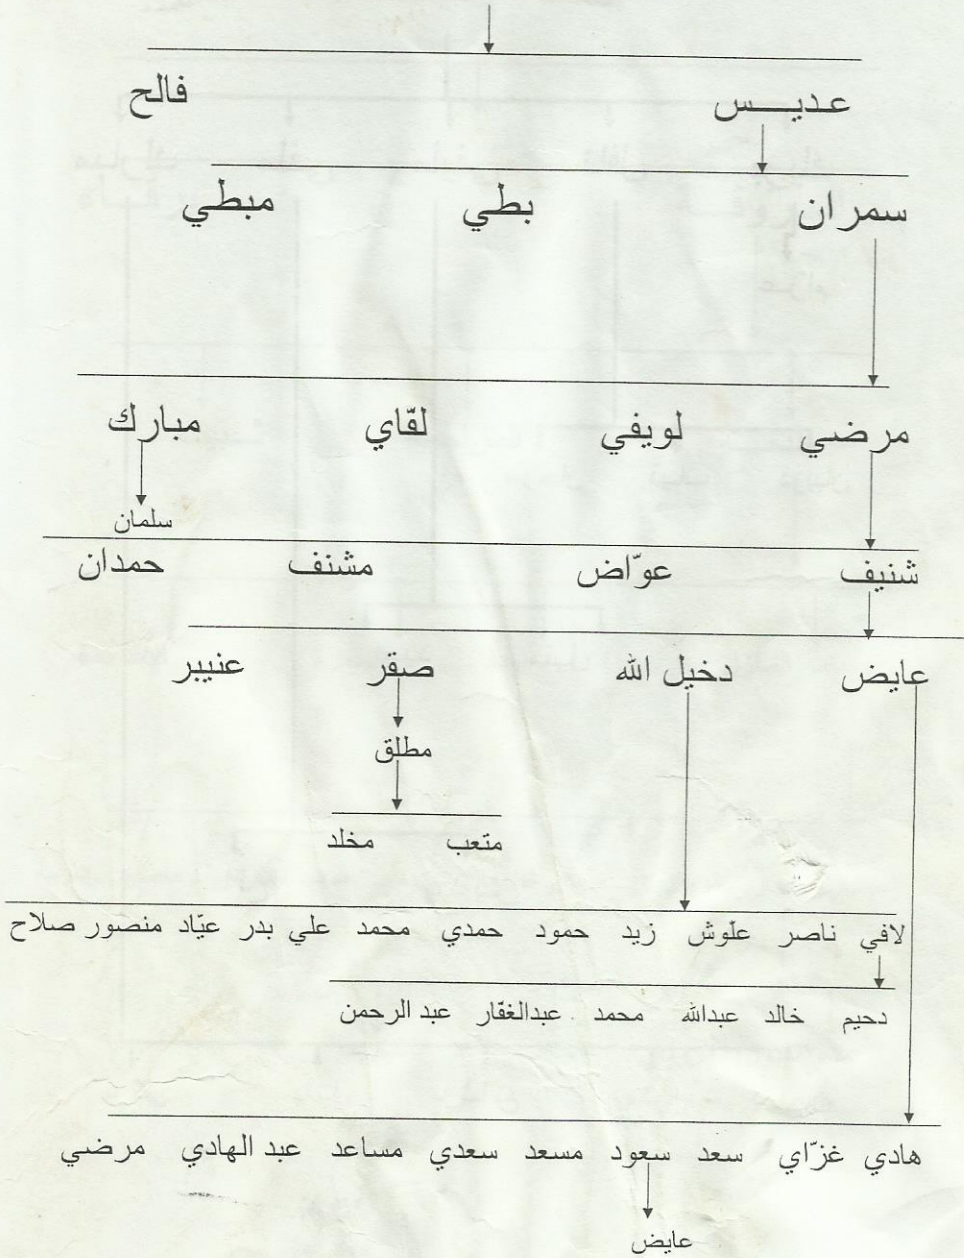 عديـــس فالح
سمران بطي مبطي
مرضي لويفي لقّاي مبارك
سلمان
شنيف عوّاض مشنف حمدان
عايض دخيل الله صقر عنيبر
مطلق
متعب مخلد
لافي ناصر علّوش زيد حمود حمدي محمد علي بدر عيّاد منصور صلاح
دحيم خالد عبدالله محمد عبدالغفّار عبد الرحمن
هادي غزّاي سعد سعود مسعد سعدي مساعد عبد الهادي مرضي
عايض